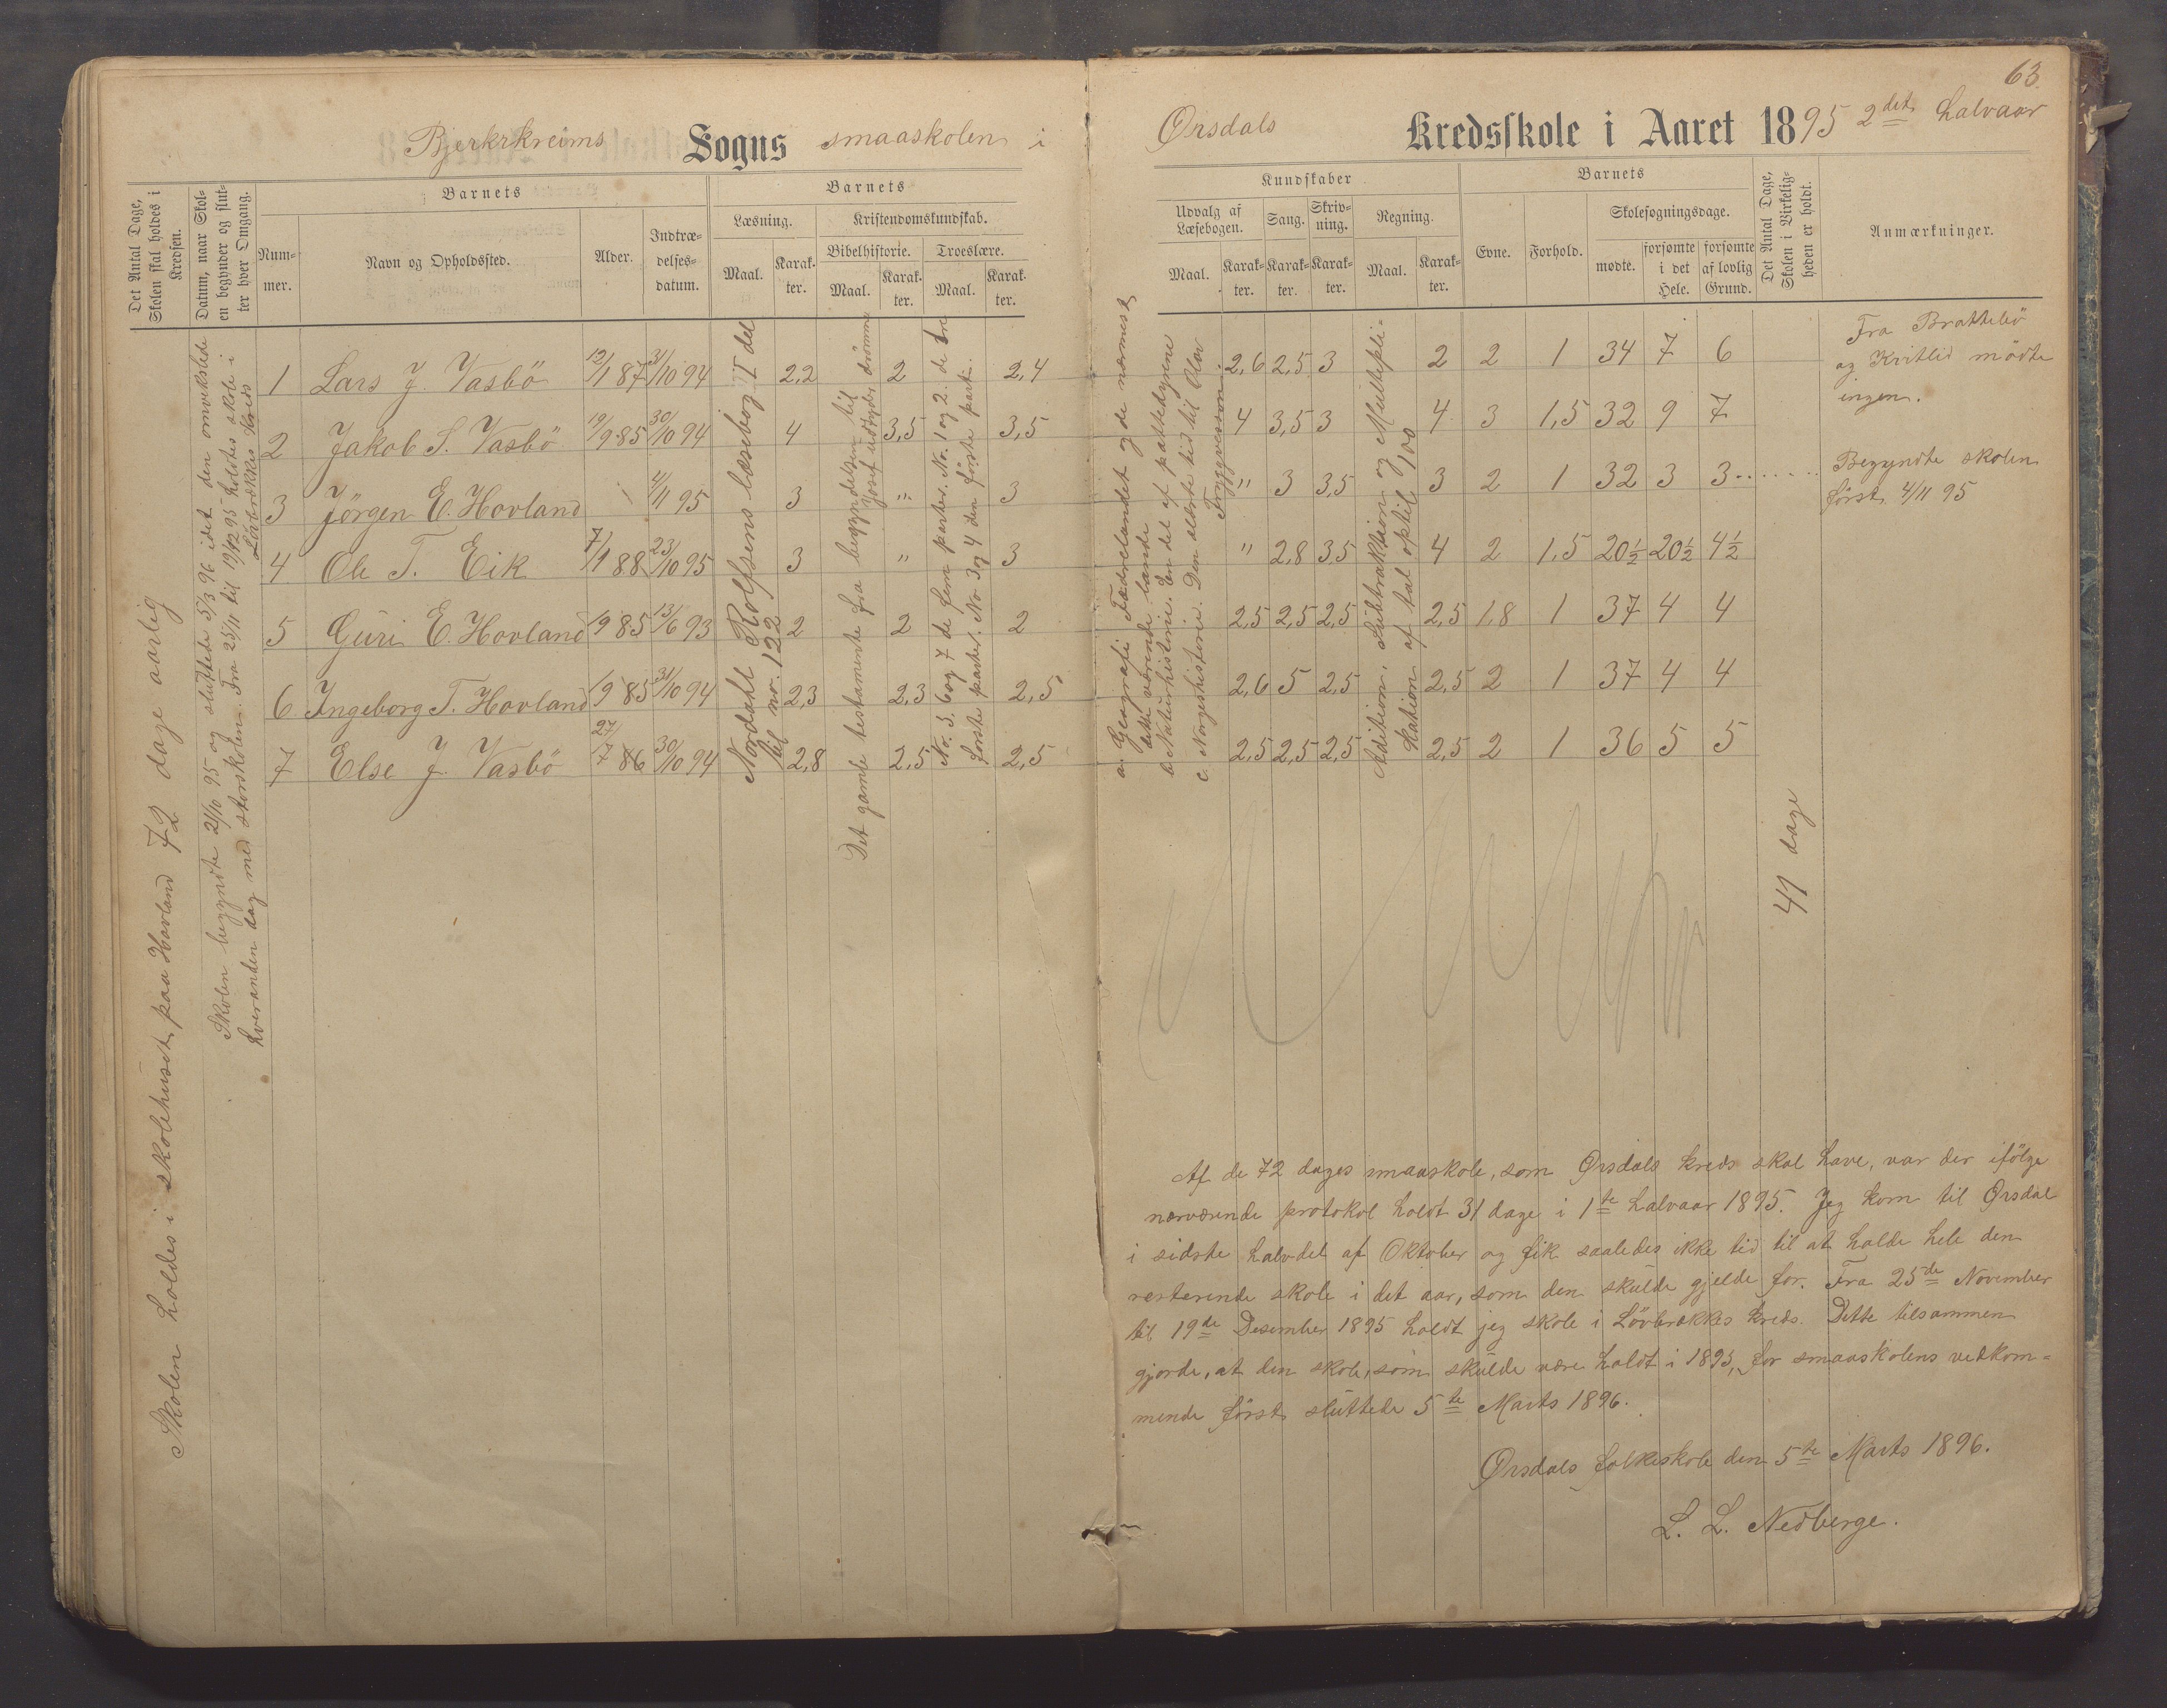 63
Bjerkrkreims Sogns smaaskolen i
Ørsdals Kredsskole i Aaret 1895 2det halvaar
Det Antal Dage, Skolen skal holdes i Kredsen.
Datum, naar Skolen begynder og slutter hver Omgang.
Barnets
Nummer.
Navn og Opholdssted.
Alder.
Indtrædelsesdatum.
Barnets
Læsning.
Maal.
Karakter.
Kristendomskundskab.
Bibelhistorie.
Maal.
Karakter.
Troeslære.
Maal.
Karakter.
Kundskaber
Udvalg af Læsebogen.
Maal.
Karakter.
Sang.
Karakter.
Skrivning.
Karakter.
Regning.
Maal.
Karakter.
Barnets
Evne.
Forhold.
Skolesøgningsdage.
mødte.
forsømte i det Hele.
forsømte af lovlig Grund.
Det Antal Dage, Skolen i Virkeligheden er holdt.
Anmærkninger.
Skolen holdes i skolehuset paa Hovland 72 dage aarlig
Skolen begyndte 21/10 95 og sluttede 5/3 96 idet den omvekslede
hveranden dag med storskolen. Fra 25/11 til 19/12 95 holdtes skole i
Løvbrækkes kreds
Nordahl Rolfsens læsebog I del
til nr. 122
Det gamle testamente fra begyndelsen til
Josef udtyder drømme
No. 5. 6 og 7 de fem parter. No. 1 og 2. de tre
første parter. No. 3 og 4 den første part.
a. Geografi Fædrelandet og de nærmest
dette værende lande
b. Naturhistorie. En del af pattedyrene
c. Norgeshistorie. Den ældste tid til Olav
Tryggvesson.
Adition, Subtraktion og Multipli-
kation af tal optil 100
1 Lars J. Vasbö 12/1 87 31/10 94 2,2 2 2,4 2,6 2,5 3 2 2 1 34 7 6
2 Jakob S. Vasbö 19/9 85 30/10 94 4 3,5 3,5 4 3,5 3 4 3 1,5 32 9 7
3 Jörgen E. Hovland 4/11 95 3 " 3 " 3 3,5 3 2 1 32 3 3
4 Ole T. Eik 7/1 88 23/10 95 3 " 3 " 2,8 3,5 4 2 1,5 20½ 20½ 4½
5 Guri E. Hovland 19 85 13/6 93 2 2 2 2,5 2,5 2,5 2,5 1,8 1 37 4 4
6 Ingeborg T. Hovland 19 85 31/10 94 2,3 2,3 2,5 2,6 5 2,5 2,5 2 1 37 4 4
7 Else J. Vasbö 27/7 86 30/10 94 2,8 2,5 2,5 2,5 2,5 2,5 2,5 2 1 36 5 5
41 dage
Fra Brattebö
og Kvitlid mödte
ingen.
Begyndte skolen
først 4/11 95
Af de 72 dages smaaskole, som Ørsdals kreds skal have, var der ifölge
nærværende protokol holdt 31 dage i 1te halvaar 1895. Jeg kom til Ørsdal
i sidste halvdel af Oktober og fik saaledes ikke tid til at holde hele den
resterende skole i det aar, som den skulde gjelde for. Fra 25de November
til 19de Desember 1895 holdt jeg skole i Lövbrækkes kreds. Dette tilsammen
gjorde, at den skole, som skulde være holdt i 1895, for smaaskolens vedkom-
mende först sluttede 5te Marts 1896.
Ørsdals folkeskole den 5te Marts 1896.
L. L. Nedberge.